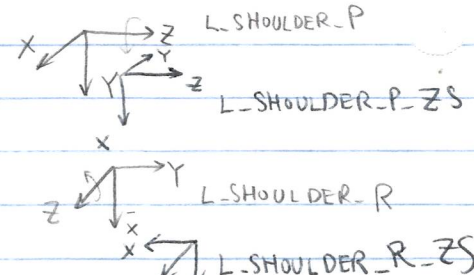 Z L_SHOULDER_P
X
Y
Y Z
L_SHOULDER_P_ZS
X
Y
L_SHOULDER_R
Z
X
X L_SHOULDER_R_ZS